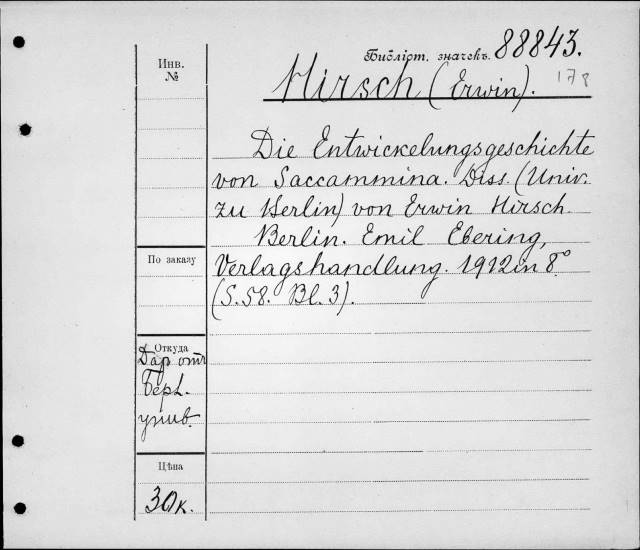 Библіот. значекъ. 88843.
178
Hirsch (Erwin).
Die Entwickelungsgeschichte
von Saccammina. Diss. (Univ.
zu Berlin) von Erwin Hirsch
Berlin. Emil Ebering,
Verlagshandlung. 1912 in 8°
(S. 58. Bl. 3).
Инв.
№
По заказу
Откуда
Дар от
Берл.
унив.
Цѣна
30 к.